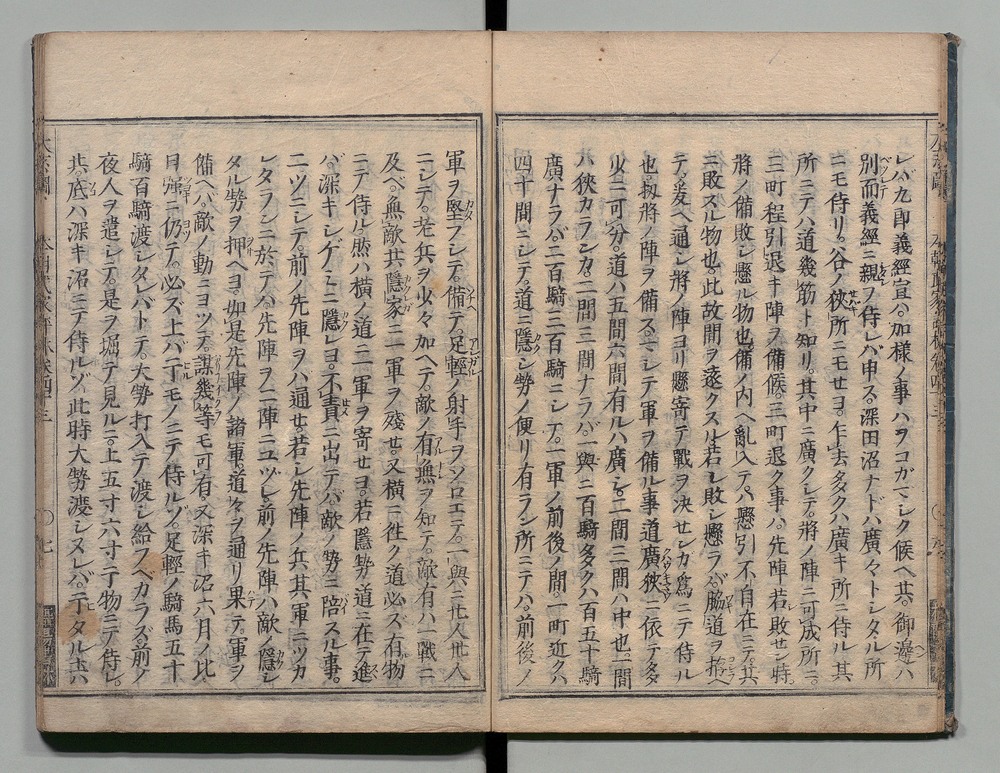 レバ九郎義經宣ハ。加樣ノ事ハヲコガマシク候ヘ共。御邊ハ
別而義經ニ親ヲ侍レバ申ス。深田沼ナドハ廣々トシタル所
ニモ侍リ。谷ノ狹所ニモセヨ。乍去多クハ廣キ所ニ侍ル其
所ニテハ道幾筋ト知リ。其中ニ廣クシテ。將ノ陣ニ可成所ニ。
三町程引退キ陣ヲ備候。三町退ク事ハ。先陣若敗セシ時。
將ノ備敗シ懸ル物也。備ノ內ヘ亂入テハ懸引不自在ニテ。其
ニ敗スル物也。此故間ヲ遠クス。若シ敗シ懸ラバ脇道ヲ
テ。爰ヘ通シ將ノ陣ヨリ懸寄テ戰ヲ決センカ爲ニテ侍ル
也。扨將ノ陣ヲ備ス。ニシテ軍ヲ備ル事道廣狹ニ依テ多
少ニ可分。道ハ五間六間有ルハ廣シ。二間三間ハ中也。一間
ハ狹カランカ。二間三間ナラバ。一與ニ百騎多クハ百五十騎
廣ナラバ。二百騎三百騎ニシテ。一軍ノ前後ノ間。一町近クハ
四十間ニシテ。道ニ隱シ勢ノ便リ有ラン所ニテハ。前後ノ
軍ヲ堅フシテ。備テ。足輕ノ射手ヲソロエテ。一與ニ廿人卅人
ニシテ。老兵ヲ少々加ヘテ。敵ノ有無ヲ知テ。敵有ハ一戰ニ
及ベ。無敵共隱家ニ一軍ヲ殘セ。又橫ニ往ク道必ズ有物
ニテ侍ル。然ハ橫ノ道ニ一軍ヲ寄セヨ。若隱勢道ニ在テ進
バ。深キシゲミニ隱レヨ。不責ニ出テバ敵ノ勢ニ陪スル事。
ニツニシテ。前ノ先陣ヲバ通セ。若シ先陣ノ兵其軍ニツカ
レタランニ於テハ先陣ヲ二陣ニユヅレ。前ノ先陣ハ敵ノ隱シ
タル勢ヲ押ヘヨ。如是先陣ノ諸軍道々ヲ通リ果テ。軍ヲ
備ヘバ。敵ノ動ニヨツテ。謀幾等モ可有。又深キ沼六月ノ比
日強ニ仍テ。必ズ上バ干モノニテ侍ルゾ。足輕ノ騎馬五十
騎百騎渡シタバトテ。大勢打入テ渡シ給フベカラズ。前ノ
夜人ヲ遣シテ。是ヲ堀テ見ルニ。上五寸六寸干物ニテ侍レ
共。底ハ深キ沼ニテ侍ルゾ。此時大勢渡シヌレバ。干タル土ハ